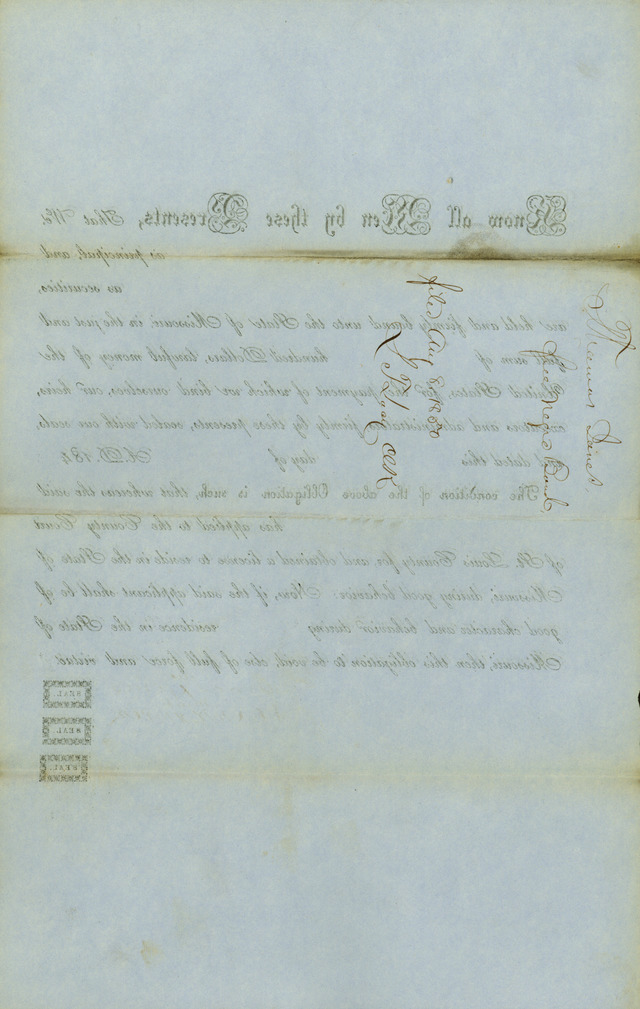 Know all Men by these Presents, That We
as principal, and
as securities,
are held and firmly bound unto the State of Missouri, in the just and
sum of hundred Dollars, lawful money of the
United States, for the payment of which we bind ourselves, our heirs,
executors and administrators, firmly by these presents, sealed with our seals,
dated this day of A. D. 184
The condition of the above Obligation is such, that whereas the said
has applied to the County Court
of St. Louis County for, and obtained a license to reside in the State of
Missouri, during good behavior: Now, if the said applicant shall be of
good character and behavior during residence in the State of
Missouri, then this obligation to be void, else of full force and virtue.
SEAL
SEAL
SEAL
Free Negro Bond
filed Aug 8, 1850
Clk